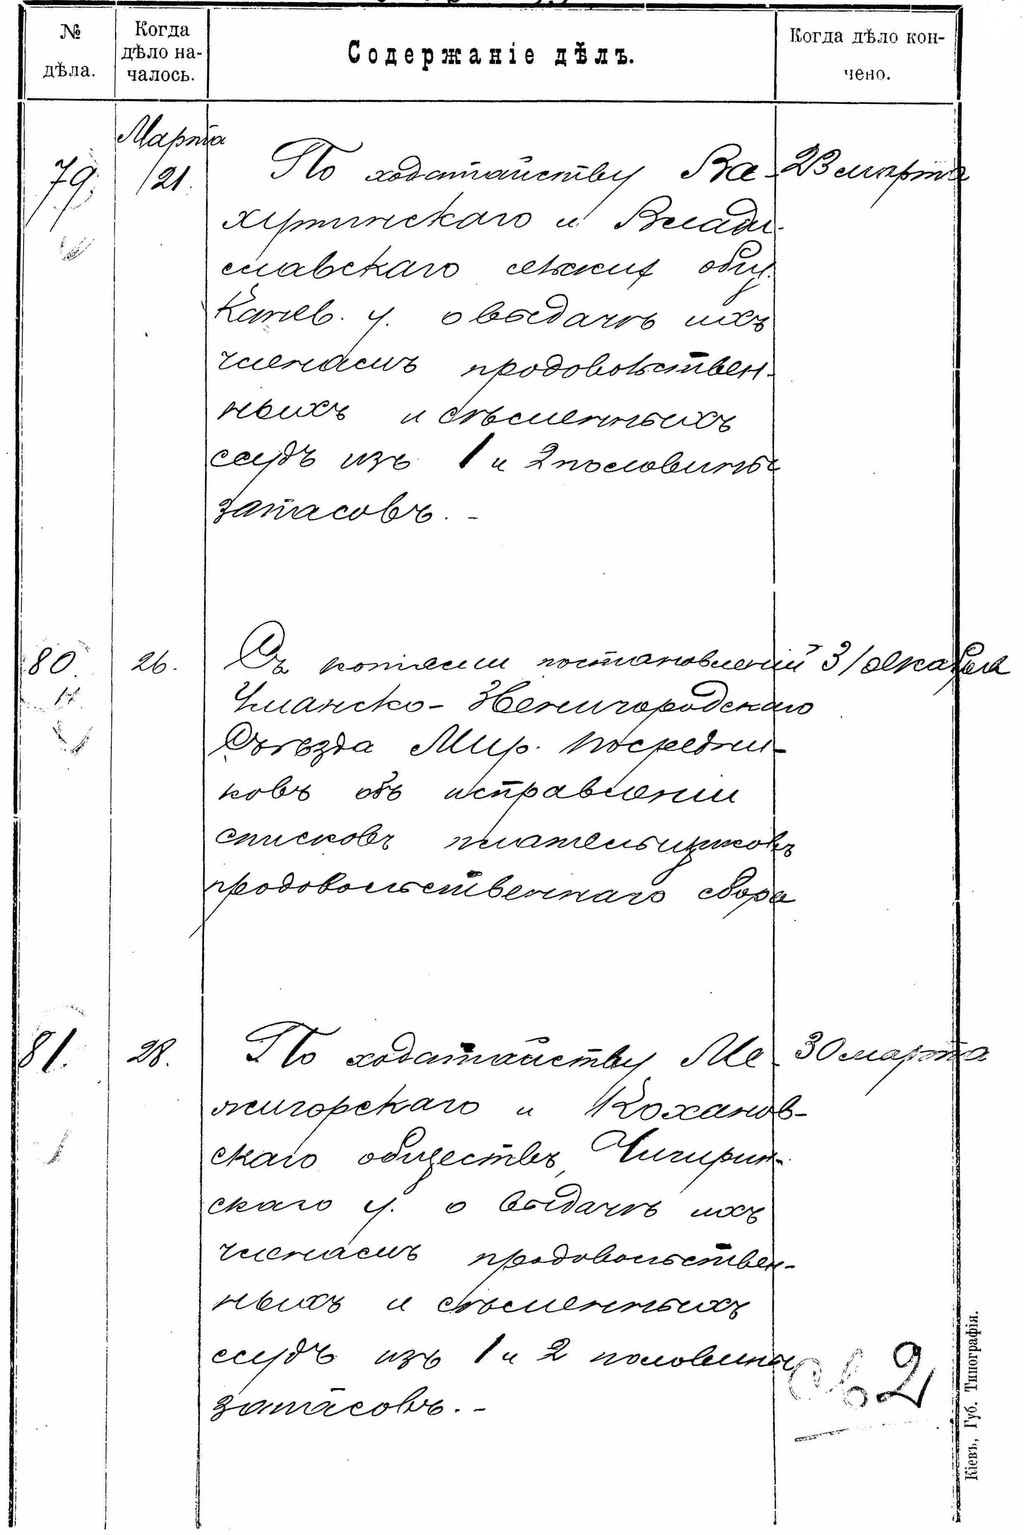 № дѣла.
Когда дѣло на-
чалось.
Содержаніе дѣлъ.
Когда дѣло кон-
чено.
Марта
79. 21. По ходатайству Ва- 23 марта
хутинскаго и Влади-
славскаго сельских общ.
Канев. у. о выдачѣ ихъ
членамъ продовольствен-
ныхъ и сѣменныхъ
ссудъ изъ 1 и 2 половины
запасовъ. -
80. 26. Съ копіями постановленій 31 декабря
Уманско-Звенигородскаго
Съѣзда Мир. Посредни-
ковъ объ исправленіи
списковъ плательщиковъ
продовольственнаго сбора
81. 28. По ходатайству Ме- 30 марта
жигорскаго и Коханов-
скаго обществъ, Чигирин-
скаго у. о выдачѣ ихъ
членамъ продовольствен-
ныхъ и сѣменныхъ
ссудъ изъ 1 и 2 половины
запасовъ. -
св 2
Кіевъ, Губ. Типографія.